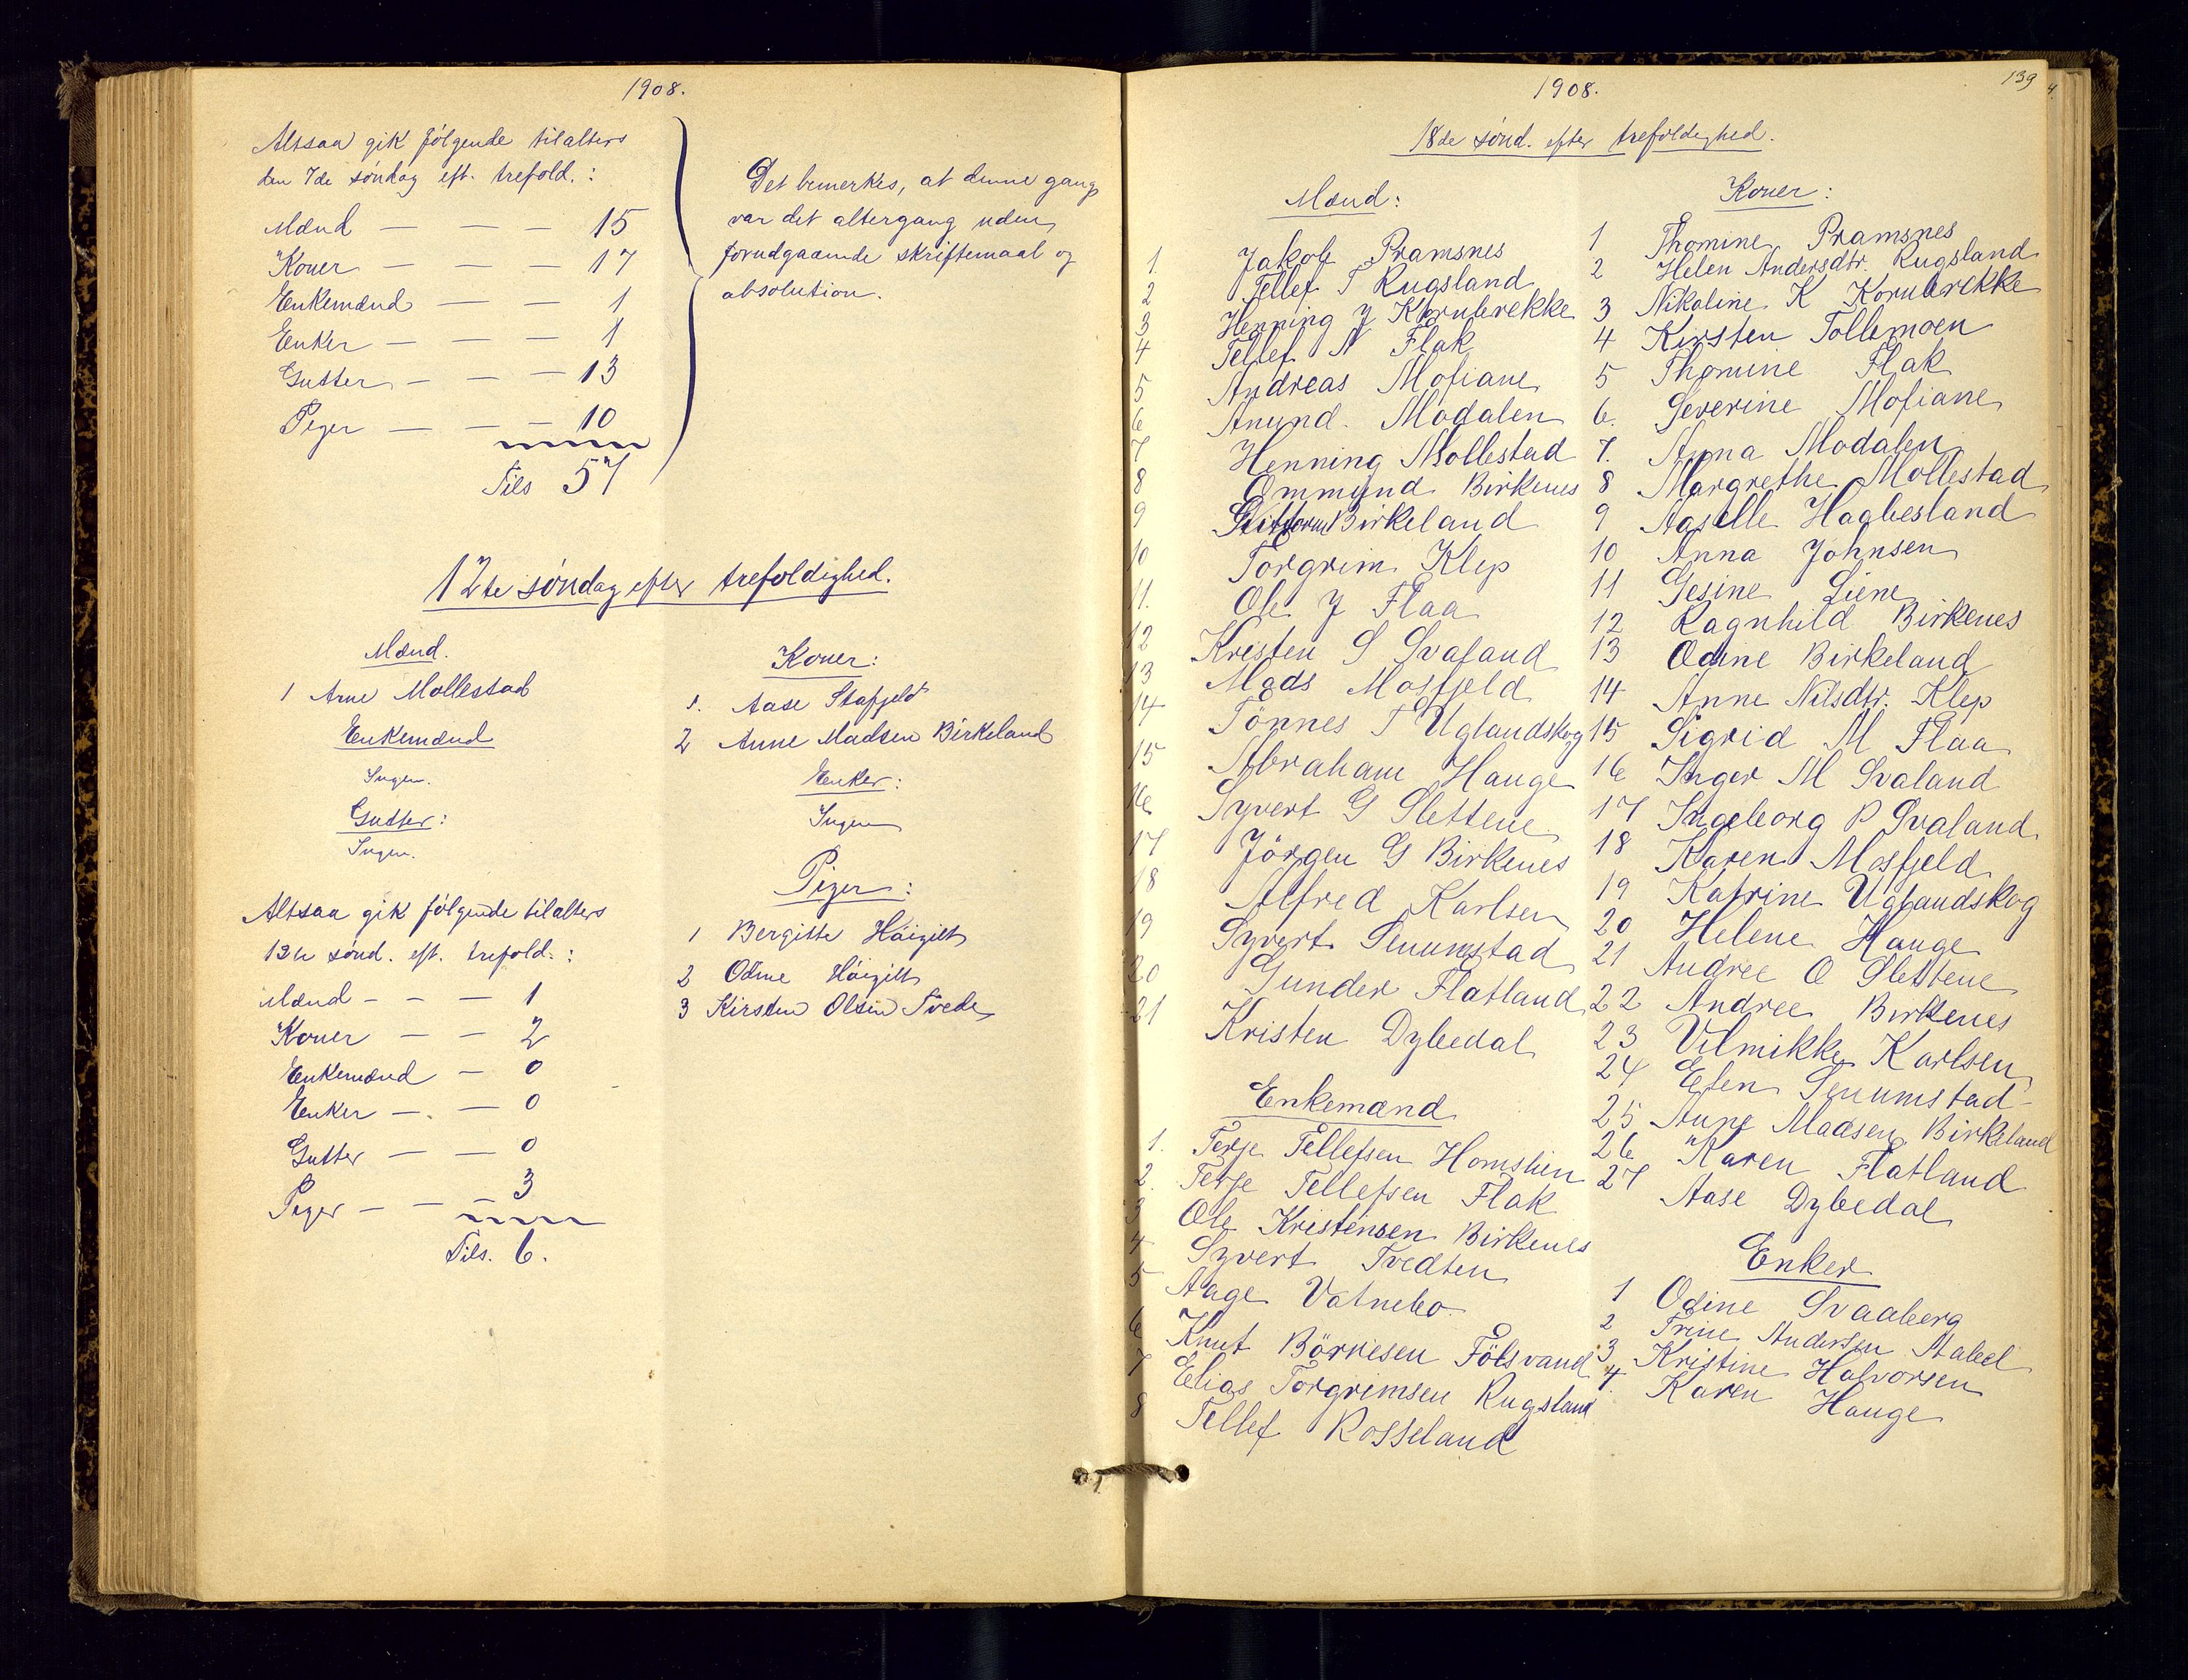 1908.
Altsaa gik følgende tilalters
den 7de søndag eft. trefold.:
Mænd — — — 15
Koner — — — 17
Enkemænd — — 1
Enker — — — 1
Gutter — — — 13
Piger — — — 10
Tils 57
Det bemerkes, at denne gang
var det altergang uden
forudgaaende skriftemaal og
absolution.
12te søndag efter trefoldighed.
Mænd.
1 Arne Mollestad
Enkemænd
Ingen.
Gutter:
Ingen.
Koner:
1. Aase Stapjeld
2 Anne Madsen Birkeland
Enker:
Ingen
Piger:
1 Bergitte Höigilt
2 Odine Höigilt
3 Kirsten Olsen Tvede
Altsaa gik følgende tilalters
12te sønd. eft. trefold.:
Mænd – – – 1
Koner — — 2
Enkemænd – 0
Enker — — 0
Gutter — — 0
Piger — — 3
Tils. 6.
139
1908.
18de sønd. efter trefoldighed.
Mænd:
1. Jakob Pramsnes
2 Tellef T Rugsland
3 Henning J Kornbrekke
4 Tellef N Flak
5 Andreas Mofiane
6 Anund Modalen
7 Henning Mollestad
8 Ommund Birkenes
9 Guttorm Birkeland
10 Torgrim Klep
11. Ole J Flaa
12 Kristen S Svaland
13 Mads Mosfjeld
14 Tönnes T Uglandskog
15 Abraham Hauge
16 Syvert G Slettene
17 Jörgen G Birkenes
18 Alfred Karlsen
19 Syvert Senumstad
20 Gunder Flatland
21 Kristen Dybedal
Enkemænd
1. Terje Tellefsen Homslien
2. Terje Tellefsen Flak
3 Ole Kristensen Birkenes
4 Syvert Tvedten
5 Aage Vatnebo
6 Knut Börresen Fölsvand
7 Elias Torgrimsen Rugsland
8 Tellef Rosseland
Koner:
1 Thomine Pramsnes
2 Helen Andersdtr. Rugsland
3 Nikoline K Kornbrekke
4 Kirsten Tollemoen
5 Thomine Flak
6. Severine Mofiane
7. Anna Modalen
8 Margrethe Mollestad
9 Aaselle Hagbesland
10 Anna Johnsen
11 Gesine Liene
12 Ragnhild Birkenes
13 Odine Birkeland
14 Anne Nilsdtr. Klep
15 Sigrid M Flaa
16 Inger M Svaland
17 Ingeborg P Svaland
18 Karen Mosfjeld
19 Katrine Uglandskog
20 Helene Hauge
21 Andree O Slettene
22 Andree Birkenes
23 Vilmikke Karlsen
24 Elen Senumstad
25 Anne Madsen Birkeland
26 Karen Flatland
27 Aase Dybedal
Enker
1 Odine Svaaberg
2 Trine Andersen Mabel
3 Kristine Halvorsen
4 Karen Hauge